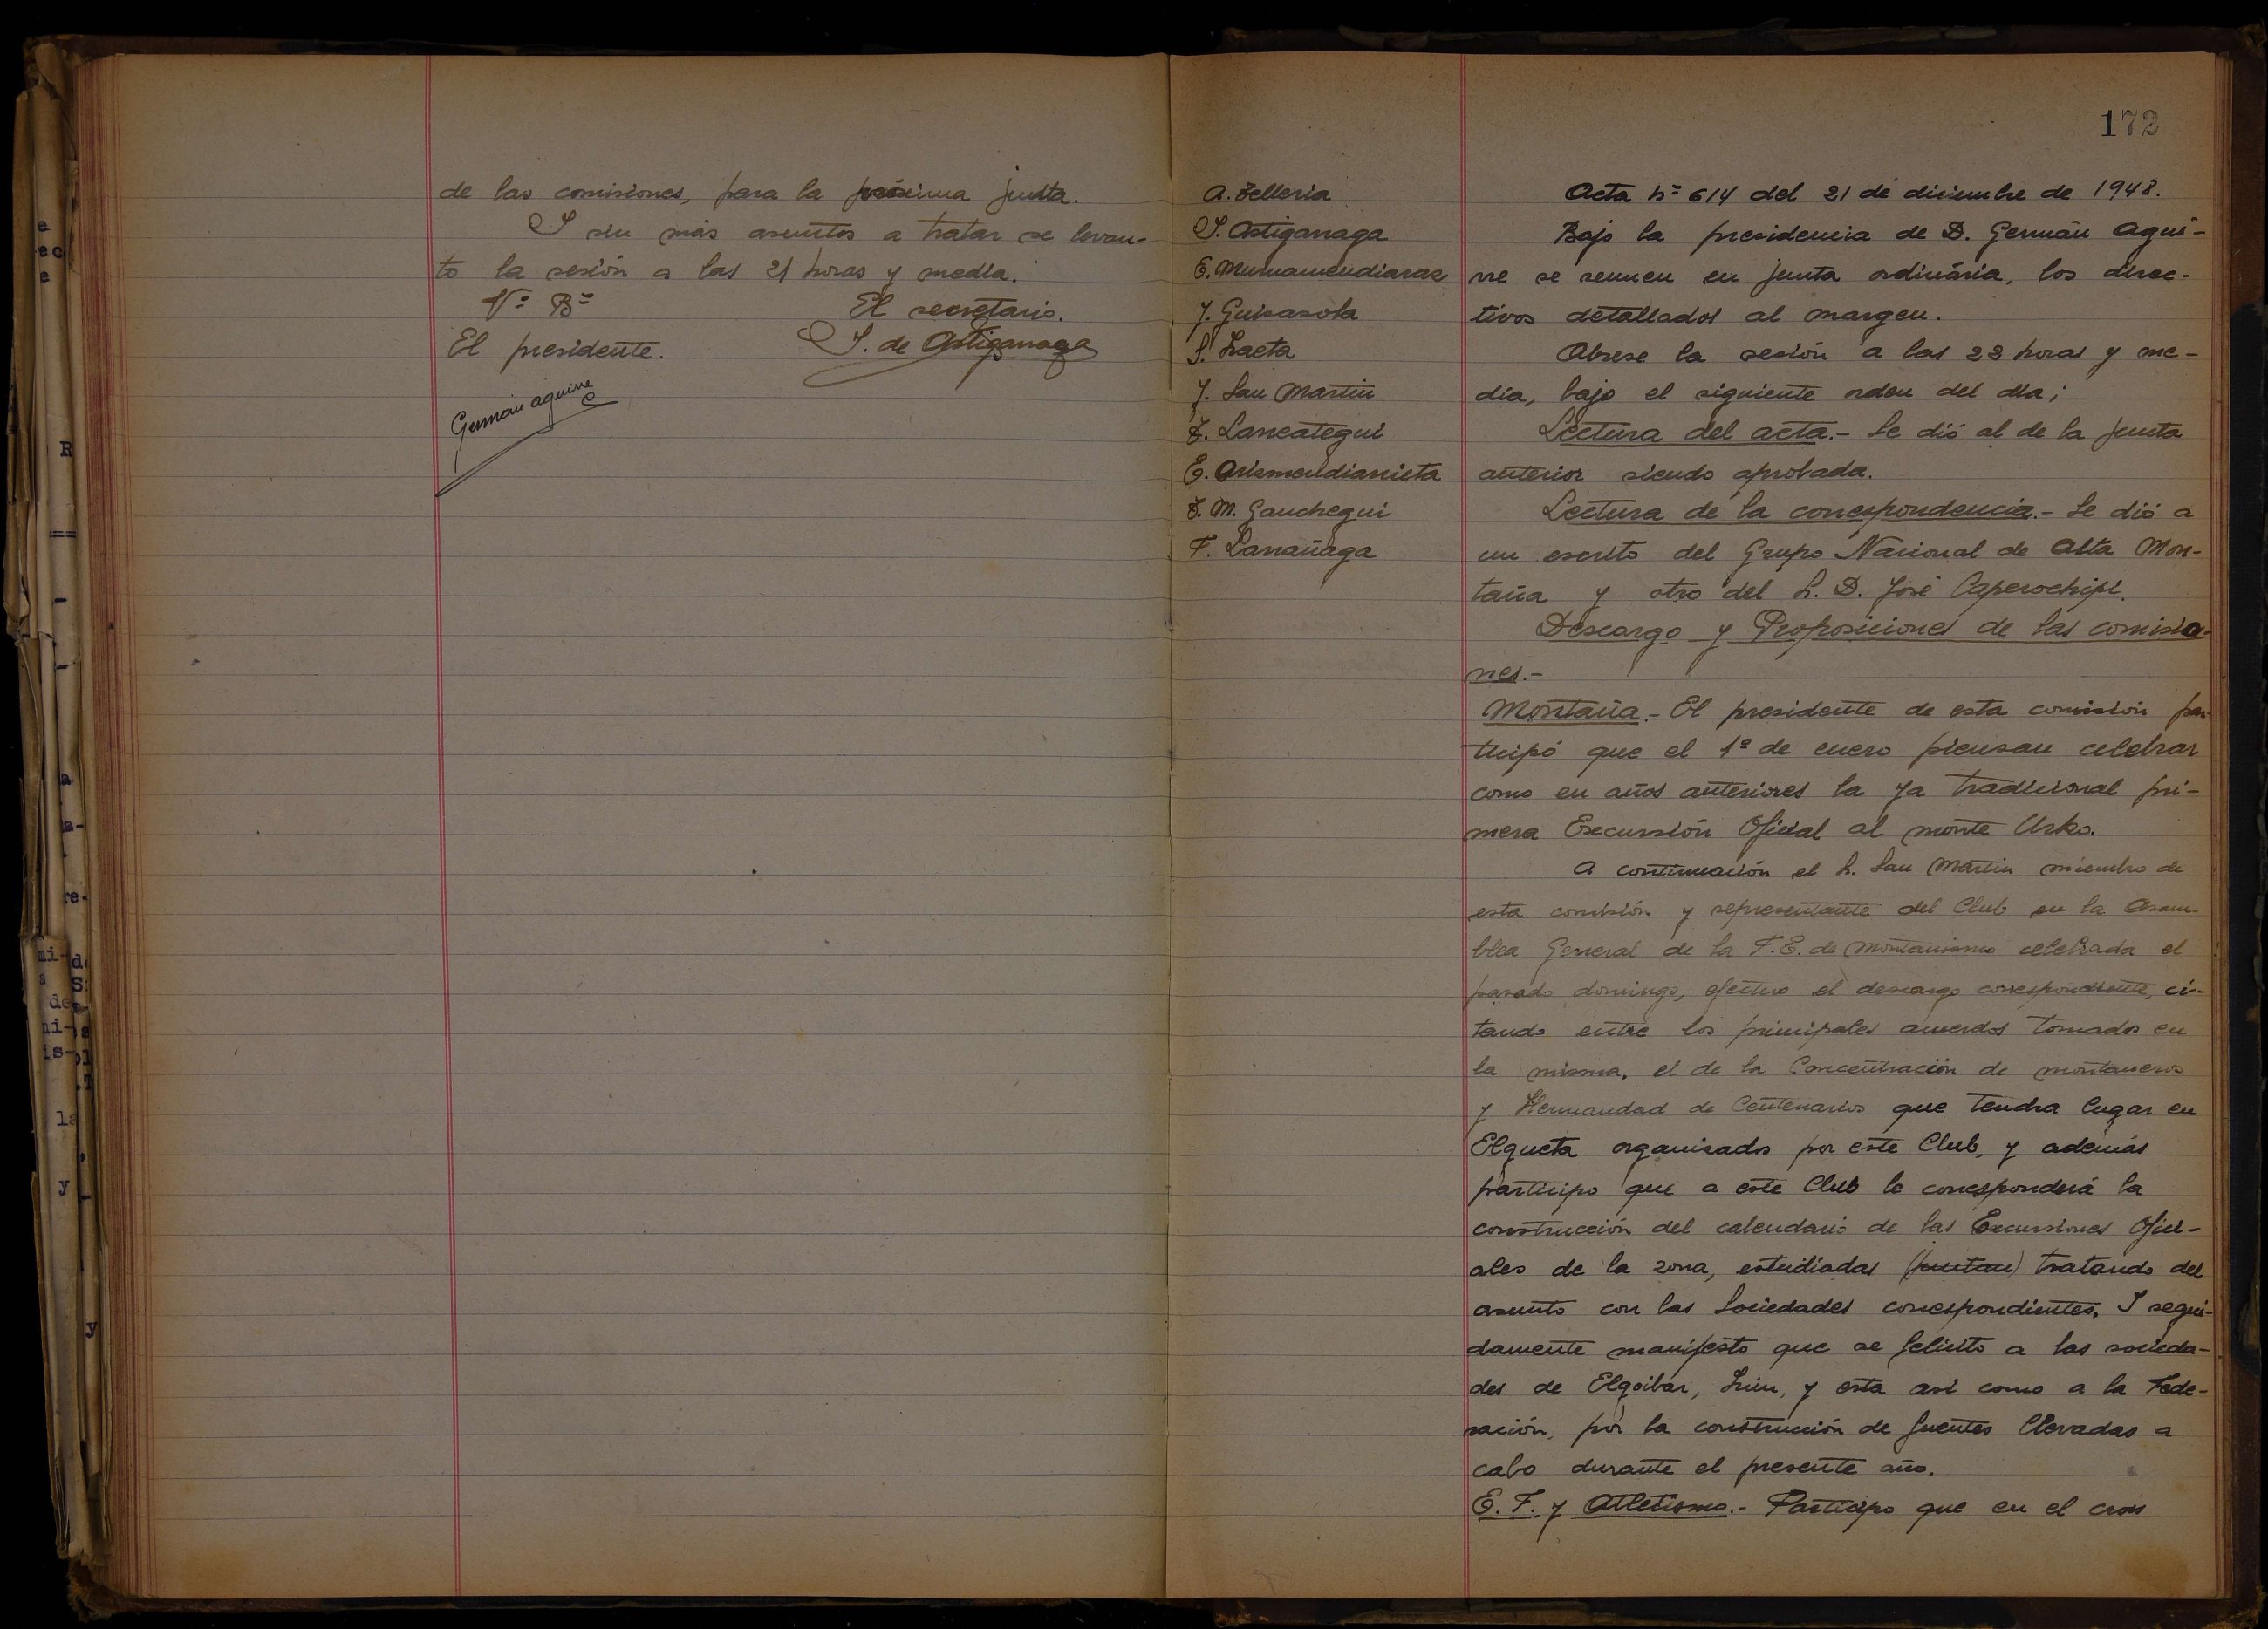 de las comisiones, para la próxima junta.
I sin más asuntos a tratar se levan-
to la sesión a las 21 horas y media.
Vº Bº El secretario.
El presidente. I. de Astiganaga
Germán aguirre
172
A. Telleria
I. Astiganaga
E. Mumamendiaraz
J. Guisasola
S. Iraeta
J. San Martin
F. Lascategui
E. Arismendiarrieta
J. M. Ganchegui
F. Larrañaga
Acta nº 614 del 21 de diciembre de 1948.
Bajo la presidencia de D. Germán Agui-
rre se reunen en junta ordinária, los direc-
tivos detallados al margen.
Abrese la sesión a las 22 horas y me-
dia, bajo el siguiente orden del dia;
Lectura del acta.- Se dió al de la junta
anterior siendo aprobada.
Lectura de la correspondencia.- Se dió a
un escrito del Grupo Nacional de Alta Mon-
taña y otro del S. D. José Caperochipi.
Descargo y Proposiciones de las comisio-
nes.-
Montaña.- El presidente de esta comisión par-
ticipó que el 1º de enero piensan celebrar
como en años anteriores la ya tradicional pri-
mera Excursión Oficial al monte Urko.
A continuación el S. San Martin miembro de
esta comisión y representante del Club en la Asam-
blea General de la F.E. de Montañismo celebrada el
pasado domingo, efectuo el descargo correspondiente, ci-
tando entre los principales acuerdos tomados en
la misma, el de la Concentración de montañeros
y Hermandad de Centenarios que tendra lugar en
Elgueta organisado por este Club, y además
participo que a este Club le corresponderá la
construcción del calendario de las Excursiones Ofici-
ales de la zona, estudiadas (juntan) tratando del
asunto con las Sociedades correspondientes. I segui-
damente manifesto que se felicito a las socieda-
des de Elgoibar, Irún, y esta asi como a la Fede-
ración, por la construcción de fuentes llevadas a
cabo durante el presente año.
E. F. y Atletismo.- Participo que en el cross